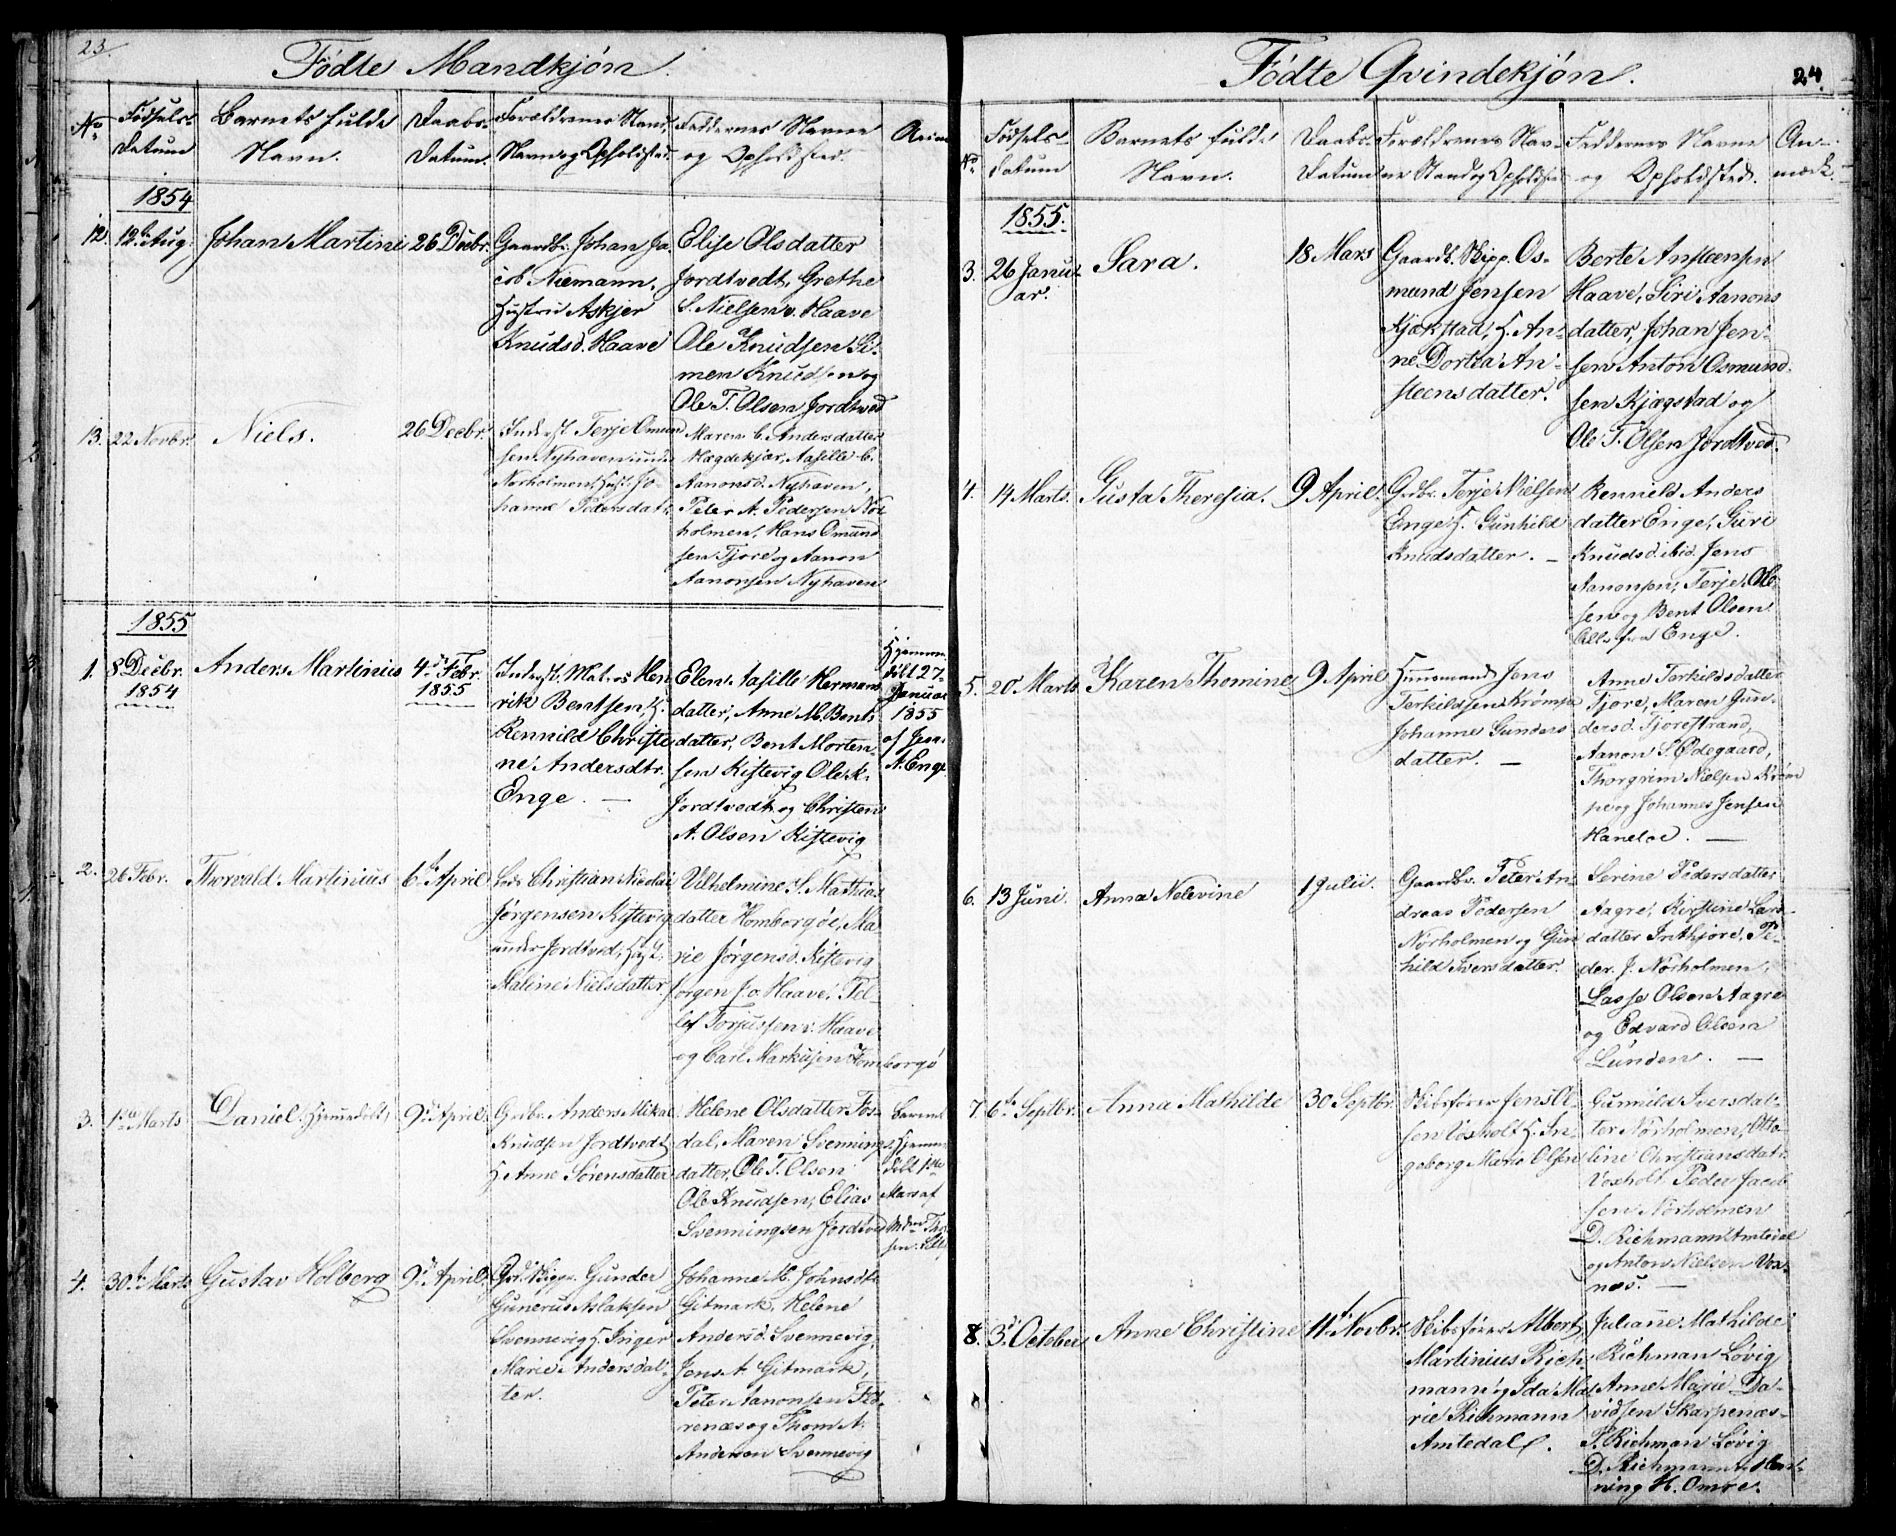 23.
Födte Mandkjøn.
No
Födsels-
datum
Barnets fulde
Navn.
Daabs-
Datum.
Forældrenes Stand,
Navn og Opholdsted.
Faddernes Navne
og Opholdsted.
Anm
1854
12. 12te Aug. Johan Martin 26 Decbr.
Gaardbr. Johan Ja-
cob Niemann,
Hustru Askjer
Knudsd. Haave
Elise Olsdatter
Jordtvedt, Grethe
S. Nielsen v. Haave
Ole Knudsen, Si-
men Knudsen og
Ole T. Olsen Jordtved
13. 22 Novbr. Niels. 26 Decbr.
Inderst. Terje Omund
sen Nyhaven under
Nørholmen, Hust. Jo-
hanne Pedersdat.
Maren C. Andersdatter
Hægdekjær, Aasille C.
Aanonsd. Nyhaven,
Peter A. Pedersen Nør
holmen, Hans Omund
sen Tjore og Aanon
Aanonsen Nyhaven
1855
1. 8 Decbr.
1854
Anders Martinius
4de Febr.
1855
Inderst. Mat. os Hen
rik Bentsen, H.
Rennild Christi
ne Andersdtr.
Enge. —
Elen Aasille Herman
datter, Anne M. Bents
datter, Bent Morten-
sen Kistevig Ole K.
Jordtvedt og Christen
A. Olsen Kistevig
Hjemme
døbt 27
Januar
1855
af Jens
A. Enge
2. 26 Febr. Thorvald Martinius 6te April
Christian Nicolai
Jørgensen Kistevig
under Jordtved, Hust.
Maline Nielsdatter
Vilhelmine S. Mathias
datter Homborgöe, Ma
rie Jørgensd. Kistevig
Jørgen J. o. Haave, Tel-
lef Torjussen v. Haave
og Carl Markusen Homborgö
3. 1ste Marts Daniel (hjemmedøbt) 9de April
Grdbr. Anders Mikal
Knudsen Jordtvedt
H. Anne Sörensdatter
Helene Olsdatter Fos-
dal, Maren Svennings
datter, Ole T. Olsen
Ole Knudsen, Elias
Svenningsen Jordtved
Barnet
Hjemme
døbt 1ste
Mars af
4. 30te Marts Gustav Holberg 9de April.
Grd. Skippr. Gunder
Gunerus Aslaksen
Svennevig H. Inger
Marie Andersdat-
ter.
Johanne M. Johnsdtr.
Gitmark, Helene
Andersd. Svennevig,
Jens A Gitmark,
Peter Aanonsen Fid-
renæs og Thom A.
Anderson Svennevig
Födte Qvindekjøn.
24.
No
Födsels-
datum
Barnets fulde
Navn.
Daabs-
Datum
Forældrenes Nav-
ne Stand og Opholdsted
Faddernes Navne
og Opholdsted.
An-
mærk.
1855.
3. 26 Janu-
ar.
Sara.
18 Mars
Gaardb. Skipp. Os-
mund Jensen
Kjægstad, H. An-
ne Dortea An-
steensdatter.
Berte Ansteensen
Haave, Siri Aanons
datter, Johan Jen-
sen Anton Osmund-
sen Kjægstad og
Ole T. Olsen Jordtved.
4. 14 Marts. Gusta Theresia. 9 April.
Grdbr. Terje Nielsen
Enge H. Gunhild
Knudsdatter. —
Rennild Anders
datter Enge, Guri
Knudsd. ibid. Jens
Aanonsen, Terje Ole-
sen og Bent Olsen
Alle fra Enge.
5. 20 Marts Karen Thomine 9 April
Huusmand Jens
Terkildsen Krømpe
Johanne Gunders
datter. —
Anne Terkildsdatter
Tjore, Maren Gun-
dersd. Tjorestrand,
Aanon S. Ødegaard,
Thorgrim Nielsen Krøm
pe og Johannes Jensen
Haneloe. —
6. 13 Juni. Anna Nelevine 1 Julii.
Gaardbr. Peter An
dreas Pedersen
Nørholmen og Gun
hild Iversdatter.
Serine Pedersdatter
Aagre, Kirstine Lars-
datter Inthjore, Pe-
der J. Nørholmen,
Lasse Olsen Aagre
og Edvard Olsen
Lunden. —
7. 6te Septbr. Anna Mathilde 30 Septbr.
Skibsfører Jens Ol-
sen Voxholt H. In-
geborg Marie Olsen
Gunnild Iversdat-
ter Nørholmen, Otto
line Christiansdat.
Voxholt, Peder Jacob
sen Nørholmen
D. Richmann Amtedal
og Anton Nielsen Vox-
næs. —
8. 3de October Anne Christine 11te Novbr.
Skibsfører Albert
Martinius Rich
mann og Ida Ma
rie Richmann
Amtedal.
Juliane Mathilde
Richman Løvig
Anne Marie Da-
vidsen Skarpenæs-
P. Richman Løvig
D. Richmann, Hen-
ning H. Omre.